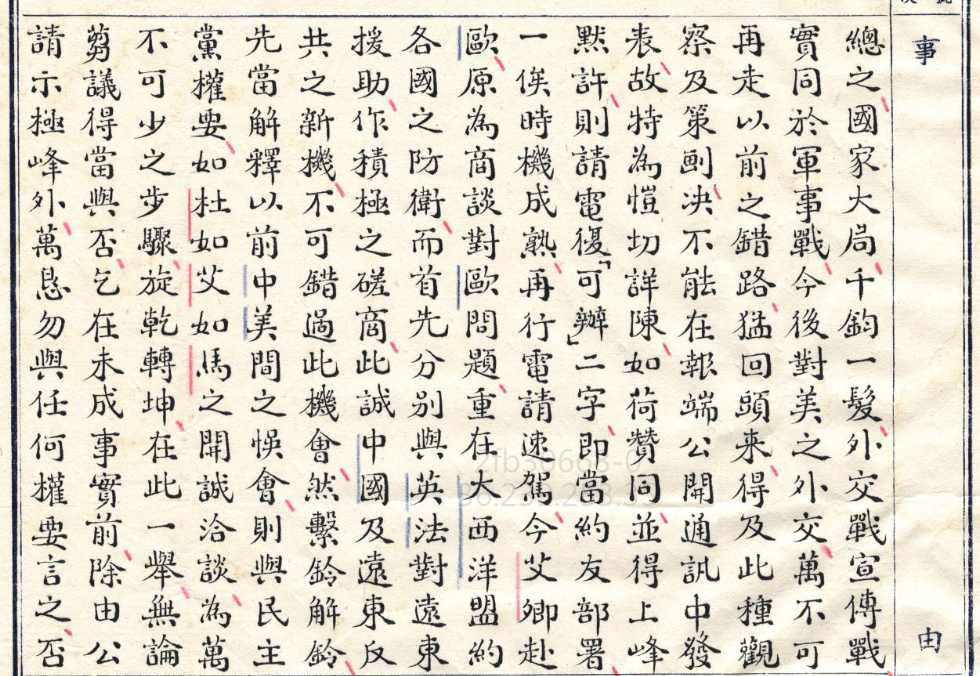 事由
總之國家大局千鈞一髮外交戰宣傳戰
實同於軍事戰今後對美之外交萬不可
再走以前之錯路猛回頭來得及此種觀
察及策劃決不能在報端公開通訊中發
表故特為愷切詳陳如荷贊同並得上峰
默許則請電復「可辦」二字即當約友部署
一俟時機成熟再行電請速駕今艾卿赴
歐原為商談對歐問題重在大西洋盟約
各國之防衛而首先分別與英法對遠東
援助作積極之磋商此誠中國及遠東反
共之新機不可錯過此機會然繫鈴解鈴
先當解釋以前中美間之悞會則與民主
黨權要如杜如艾如馬之開誠洽談為萬
不可少之步驟旋乾轉坤在此一舉無論
芻議得當與否乞在未成事實前除由公
請示極峰外萬懇勿與任何權要言之否